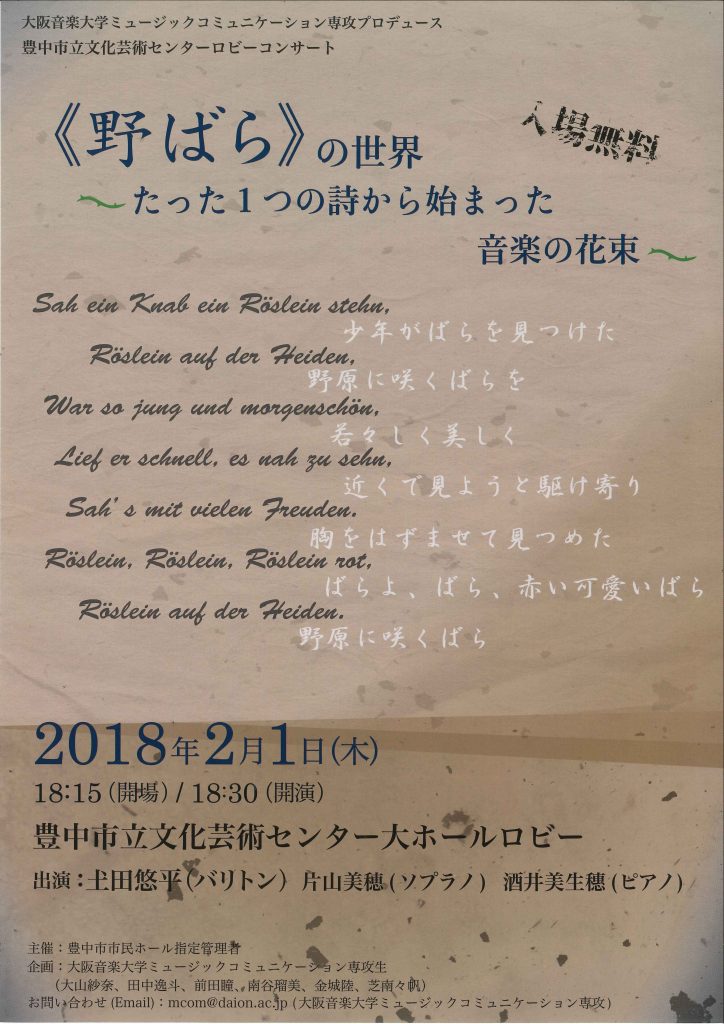 大阪音楽大学ミュージックコミュニケーション専攻プロデュース
豊中市立文化芸術センターロビーコンサート
入場無料
《野ばら》の世界
〜たった1つの詩から始まった
音楽の花束〜
Sah ein Knab ein Röslein stehn,
少年がばらを見つけた
Röslein auf der Heiden,
野原に咲くばらを
War so jung und morgenschön,
若々しく美しく
Lief er schnell, es nah zu sehn,
近くで見ようと駆け寄り
Sah's mit vielen Freuden.
胸をはずませて見つめた
Röslein, Röslein, Röslein rot,
ばらよ、ばら、赤い可愛いばら
Röslein auf der Heiden.
野原に咲くばら
2018年2月1日(木)
18:15(開場)/ 18:30(開演)
豊中市立文化芸術センター大ホールロビー
出演:𡈽田悠平(バリトン) 片山美穂(ソプラノ) 酒井美生穂(ピアノ)
主催:豊中市市民ホール指定管理者
企画:大阪音楽大学ミュージックコミュニケーション専攻生
(大山紗奈、田中逸斗、前田瞳、南谷瑠美、金城陸、芝南々帆)
お問い合わせ(Email):mcom@daion.ac.jp(大阪音楽大学ミュージックコミュニケーション専攻)